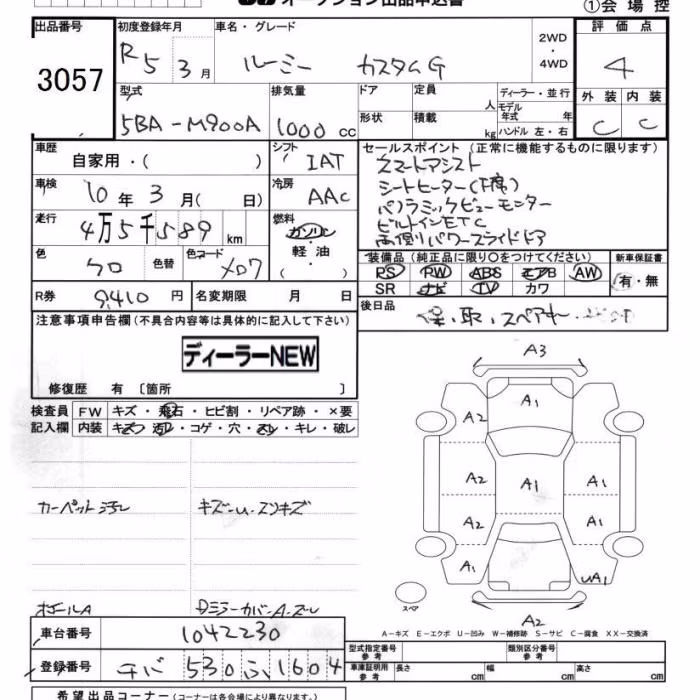 オークション出品申込書
①会場控
出品番号
3057
初度登録年月
R5 3月
車名・グレード
ルーミー カスタムG
2WD・4WD
評価点
4
型式
5BA-M900A
排気量
1000 cc
ドア
定員
人
形状
積載
kg
ディーラー・並行
モデル年式 年
ハンドル 左・右
外装 内装
C C
車歴
自家用・( )
シフト
IAT
車検
10年3月( 日)
冷房
AAC
走行
4万5千589 km
燃料
ガソリン・軽油・
色
クロ
色替
色コード
X07
R券
9,410円
名変期限 月 日
セールスポイント(正常に機能するものに限ります)
スマートアシスト
シートヒーター(F席)
パノラミックビューモニター
ビルトインETC
両側パワースライドドア
装備品(純正品に限り○をつけてください)
PS PW ABS エアB AW
SR ナビ TV カワ
新車保証書
有・無
後日品
保、取、スペアキー
注意事項申告欄(不具合内容等は具体的に記入して下さい)
ディーラーNEW
修復歴 有〔箇所 〕
検査員記入欄
FW キズ・飛石・ヒビ割・リペア跡・×要
内装 キズ・汚れ・コゲ・穴・スレ・キレ・破レ
カーペット汚レ
キズ-U・スリキズ
ホイールA
DミラーカバーA・スレ
A3
A1
A2
A2 A1 A1
A2 A1
A1 UA1
スペア
A2
A-キズ E-エクボ U-凹み W-補修跡 S-サビ C-腐食 XX-交換済
車台番号
1042230
登録番号
チバ 530 ふ 1604
型式指定番号 参考
類別区分番号 参考
車庫証明用 参考
長さ cm
幅 cm
高さ cm
希望出品コーナー(コーナーは各会場により異なります。)